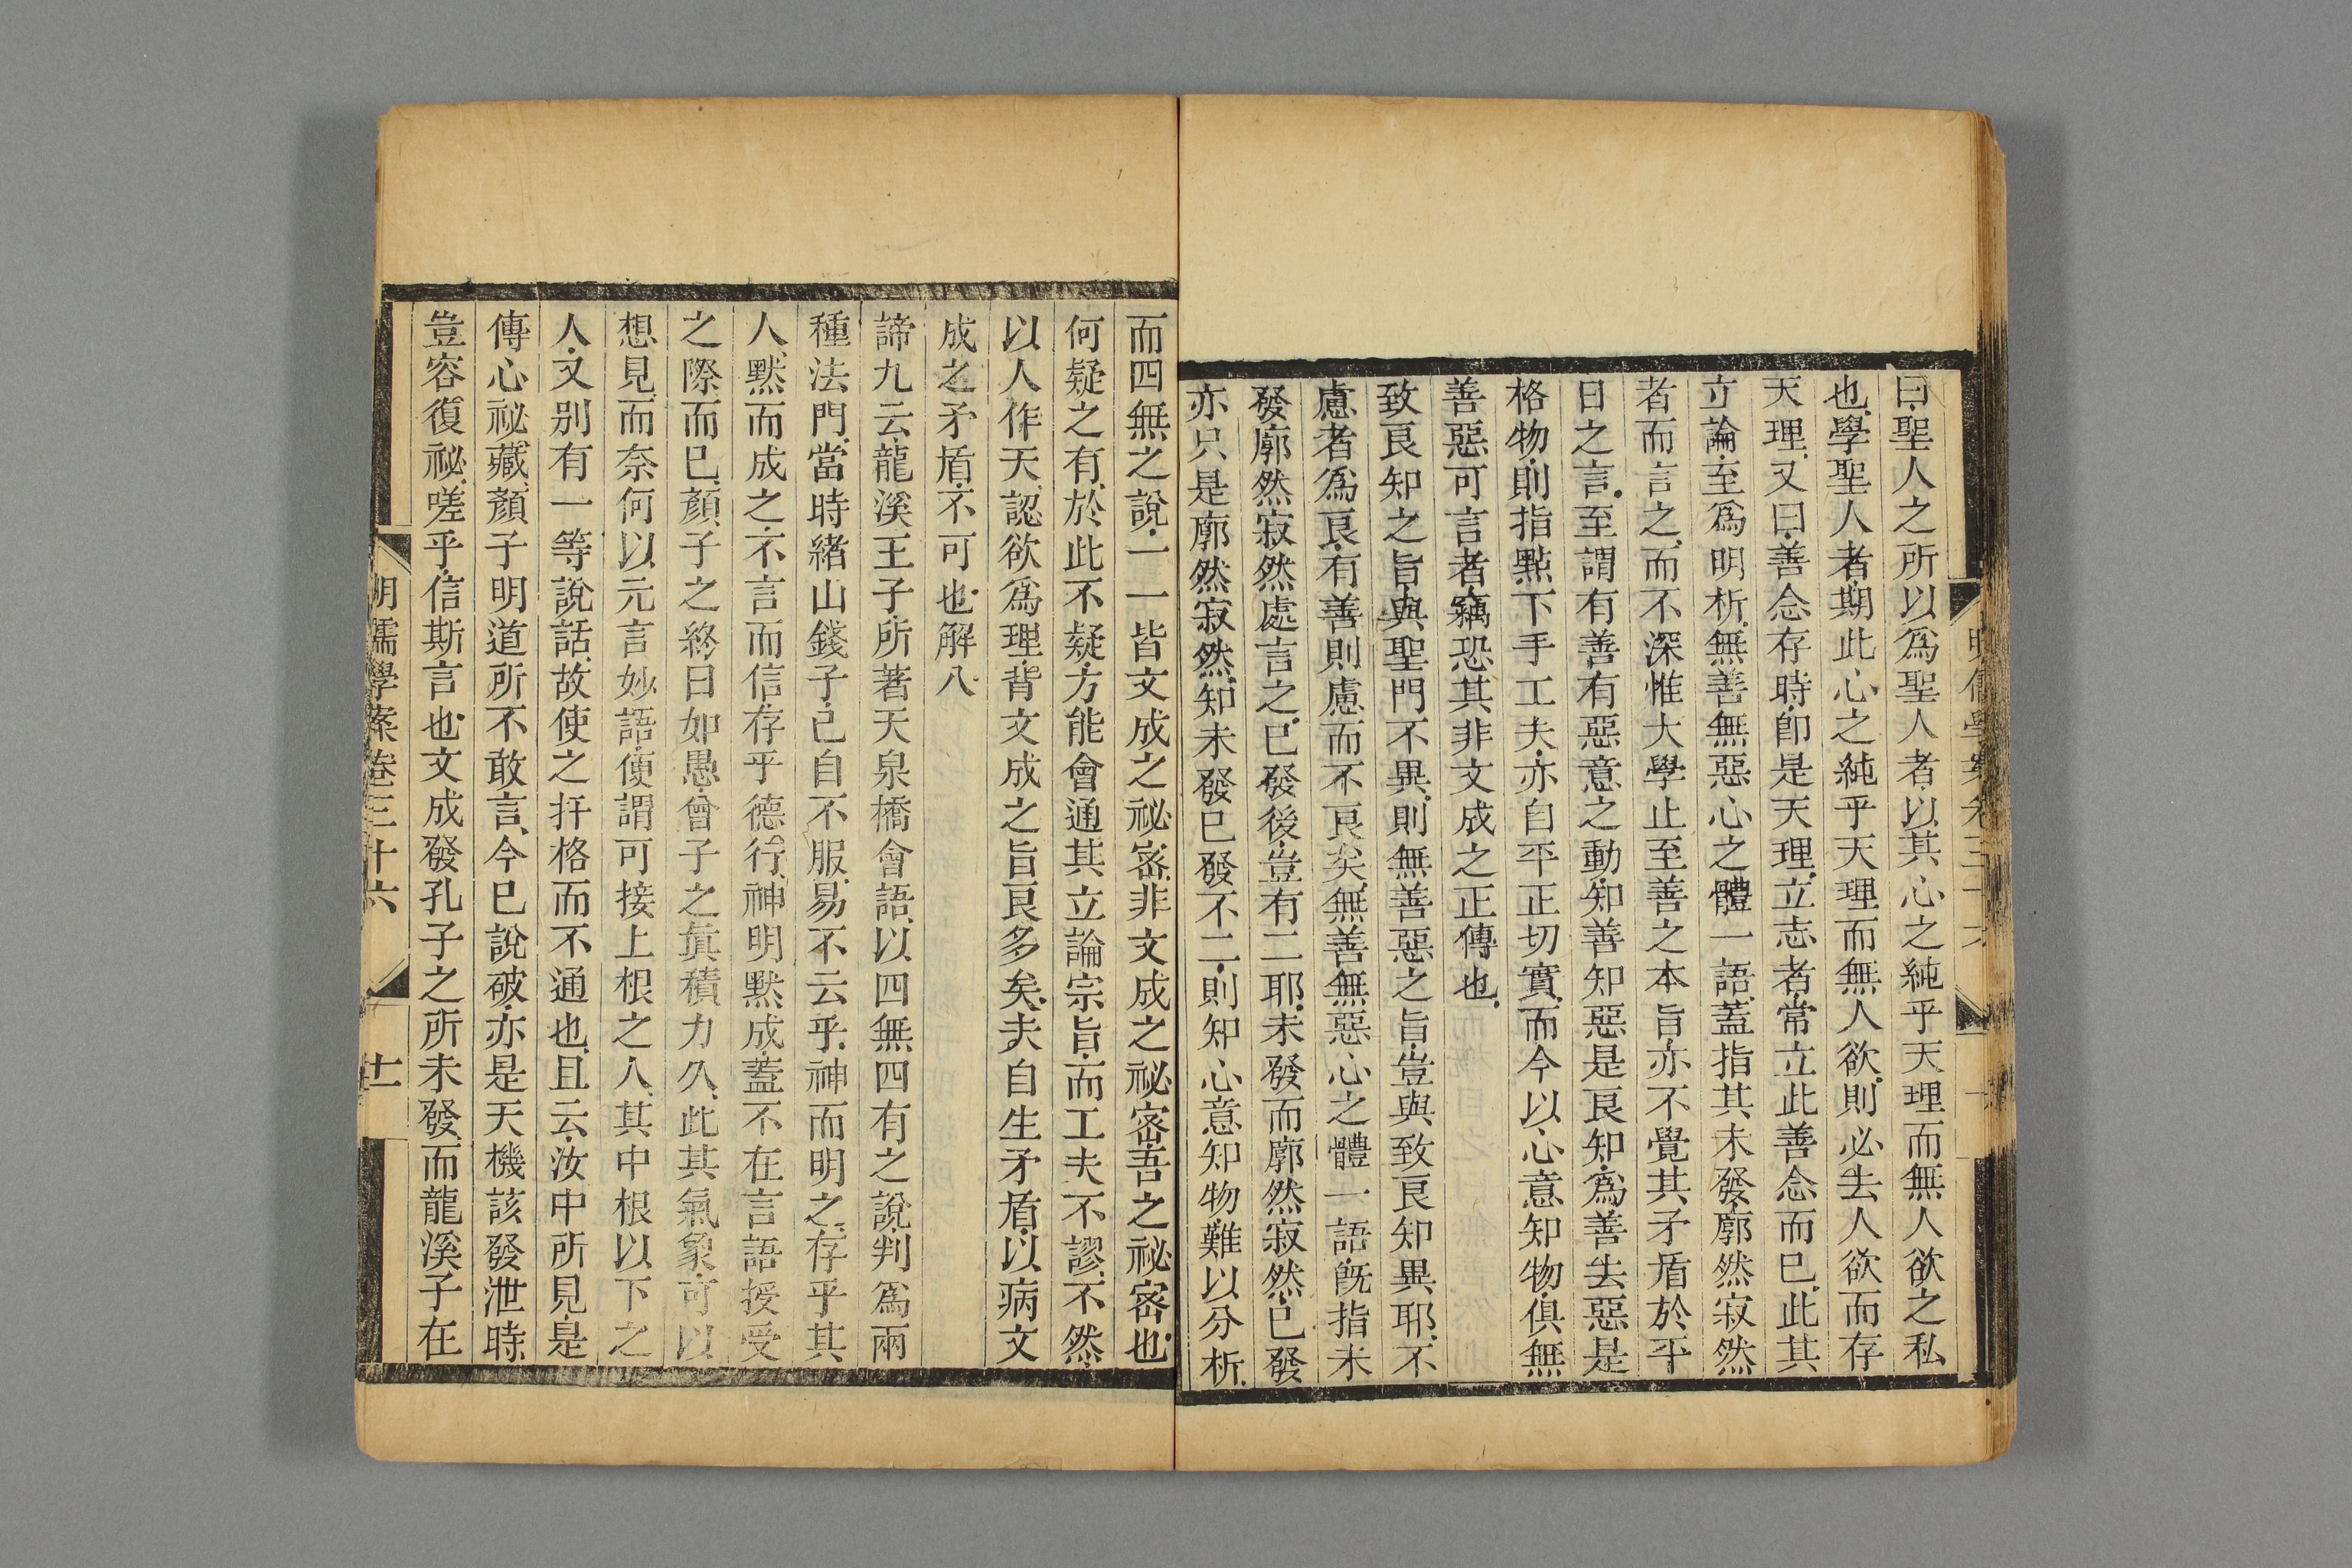 曰聖人之所以爲聖人者以其心之純乎天理而無人欲之私
也學聖人者期此心之純乎天理而無人欲則必去人欲而存
天理又曰善念存時卽是天理立志者常立此善念而已此其
立論至爲明析無善無惡心之體一語蓋指其未發廓然寂然
者而言之而不深惟大學止至善之本旨亦不覺其矛盾於平
日之言至謂有善有惡意之動知善知惡是良知爲善去惡是
格物則指點下手工夫亦自平正切實而今以心意知物俱無
善惡可言者竊恐其非文成之正傳也
致良知之旨與聖門不異則無善惡之旨豈與致良知異耶不
慮者爲良有善則慮而不良矣無善無惡心之體一語旣指未
發廓然寂然處言之已發後豈有二耶未發而廓然寂然已發
亦只是廓然寂然知未發已發不二則知心意知物難以分析
而四無之說一一皆文成之祕密非文成之祕密吾之祕密也
何疑之有於此不疑方能會通其立論宗旨而工夫不謬不然
以人作天認欲爲理背文成之旨良多矣夫自生矛盾以病文
成之矛盾不可也解八
諦九云龍溪王子所著天泉橋會語以四無四有之說判爲兩
種法門當時緒山錢子已自不服易不云乎神而明之存乎其
人默而成之不言而信存乎德行神明默成蓋不在言語授受
之際而已顏子之終日如愚曾子之眞積力久此其氣象可以
想見而奈何以元言妙語便謂可接上根之人其中根以下之
人又別有一等說話故使之扞格而不通也且云汝中所見是
傳心祕藏顏子明道所不敢言今已說破亦是天機該發泄時
豈容復祕嗟乎信斯言也文成發孔子之所未發而龍溪子在
明儒學案卷三十六
十一